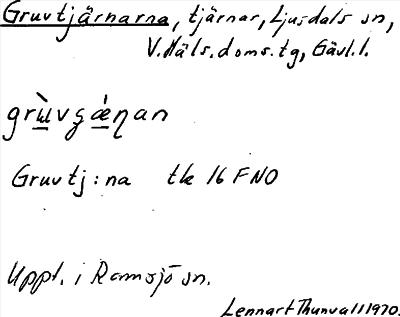 Gruvtjärnarna, tjärnar, Ljusdals sn,
V. Häls. doms. tg, Gävl. l.
grɯ̀vgǽŋan
Gruvtj:na tk 16 F NO
Uppt. i Ramsjö sn.
Lennart Thunvall 1970.